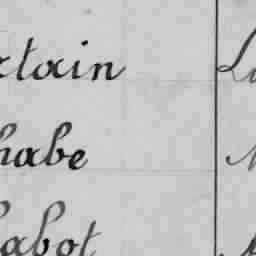 rtain La
habe
abot